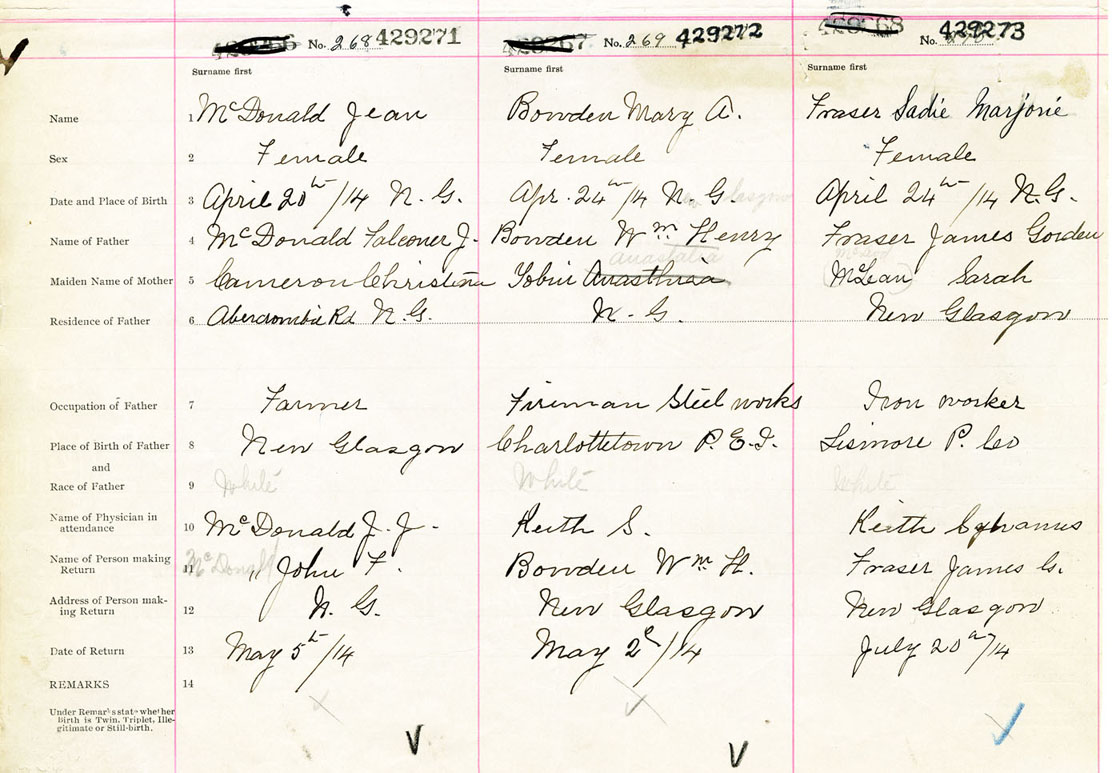 No. 268 429271 No. 269 429272 No. 429273
Surname first Surname first Surname first
Name 1 McDonald Jean Bowden Mary A. Fraser Sadie Marjorie
Sex 2 Female Female Female
Date and Place of Birth 3 April 20th/14 N.G. Apr. 24th/14 N.G. April 24th/14 N.G.
Name of Father 4 McDonald Falconer J. Bowden Wm Henry Fraser James Gorden
Anastatia
Maiden Name of Mother 5 Cameron Christina Tobin Anasthsia McLean Sarah
Residence of Father 6 Abercrombie Rd N.G. N.G. New Glasgow
Occupation of Father 7 Farmer Fireman Steel works Iron worker
Place of Birth of Father 8 New Glasgow Charlottetown P.E.I. Lismore P. Co
and
Race of Father 9 White White White
Name of Physician in attendance 10 McDonald J. J. Keith S. Keith Sylvanus
Name of Person making Return 11 McDonald " John F. Bowden Wm H. Fraser James G.
Address of Person mak-ing Return 12 N.G. New Glasgow New Glasgow
Date of Return 13 May 5th/14 May 2d/14 July 20th/14
REMARKS 14
Under Remarks state whether
Birth is Twin, Triplet, Ille-
gitimate or Still-birth.